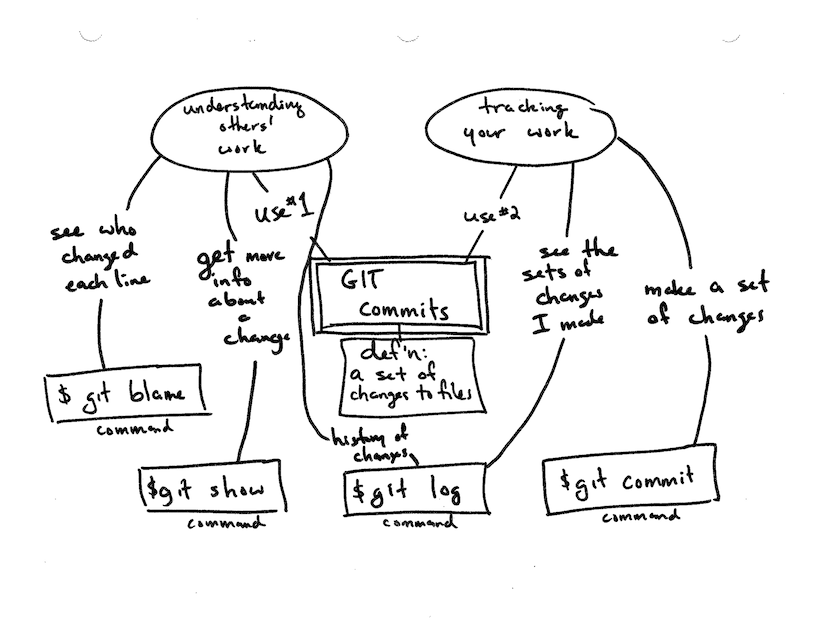 understanding
others'
work
tracking
your work
use #1
use #2
see who
changed
each line
get more
info
about
a
change
GIT
commits
def'n:
a set of
changes to files
see the
sets of
changes
I made
make a set
of changes
$ git blame
command
history of
changes
$git show
command
$git log
command
$git commit
command